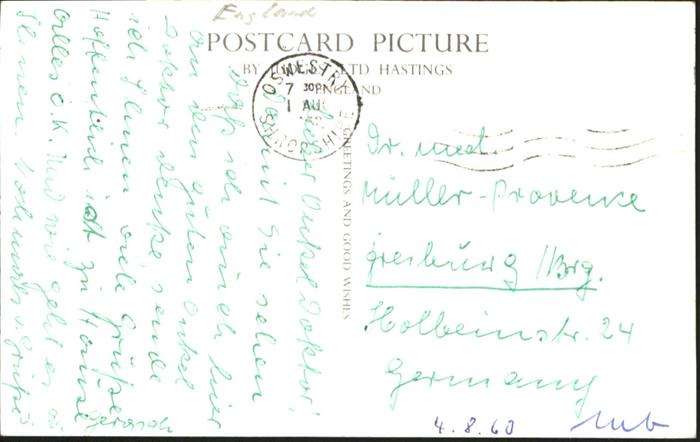 England
POSTCARD PICTURE
BY JUDGES LTD HASTINGS
ENGLAND
OSWESTRY
7 30PM
1 AUG
SHROPSHIRE
GREETINGS AND GOOD WISHES
Lieber Onkel Doktor!
Damit Sie sehen
daß ich auch hier
an den guten Onkel
Doktor denke sende
ich Ihnen viele Grüße.
Hoffentlich ist zu Hause
alles o.K. Und wie geht es
Ihnen. Nochmals v. Grüße
Dr. med.
Müller-Provence
Freiburg /Brg.
Holbeinstr. 24
Germany
4.8.60